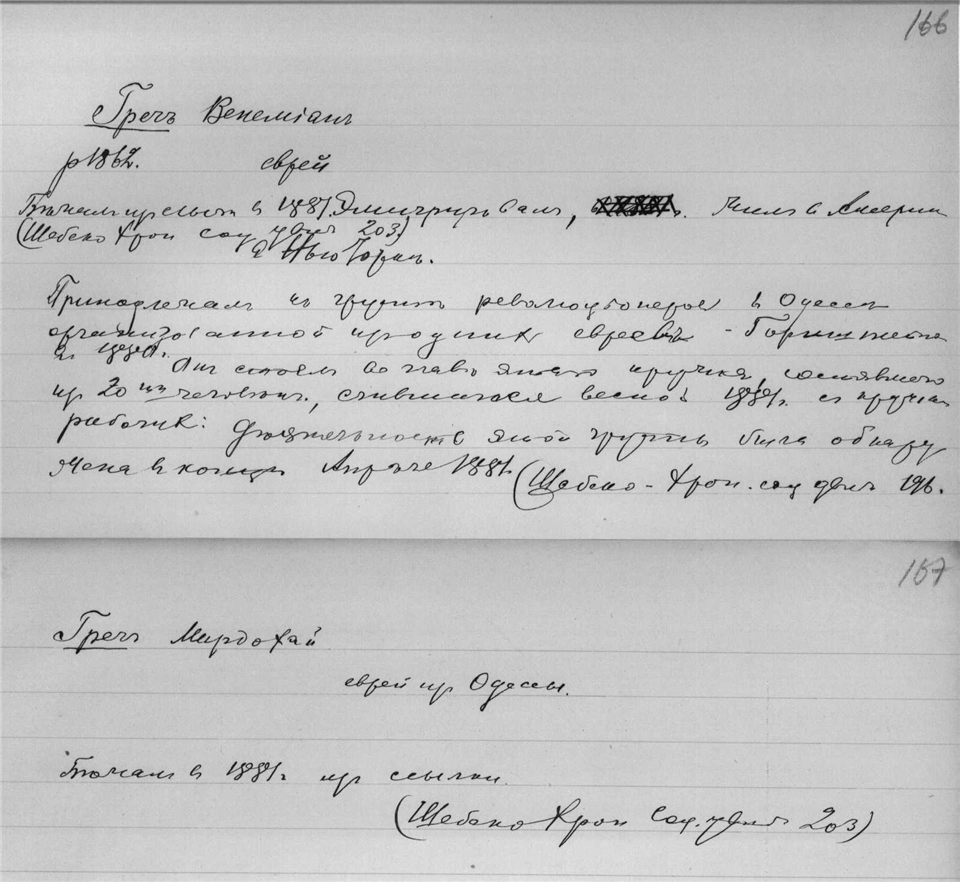 166
Гречъ Венеміанъ
р 1862. еврей
Бѣжалъ изъ ссылки в 1881. Эмигрировалъ, Жилъ в Америкѣ
(Шебеко Хрон соц движ 203)
в Нью Іоркѣ.
Принадлежалъ къ группѣ революціонеровъ въ Одессѣ
организованной изъ однихъ евреевъ -
въ 1880г. Онъ стоялъ во главѣ этого кружка, состоявшего
из 20 ти человѣкъ, слившагося весной 1881г. съ кружк.
рабочихъ: Дѣятельность этой группы была обнару
жена въ концѣ Апрѣля 1881. (Шебеко - Хрон. соц движ 196.
167
Гречъ Мардохай
еврей изъ Одессы.
Бѣжалъ въ 1881г. изъ ссылки.
(Шебеко Хрон Соц. движ 203)